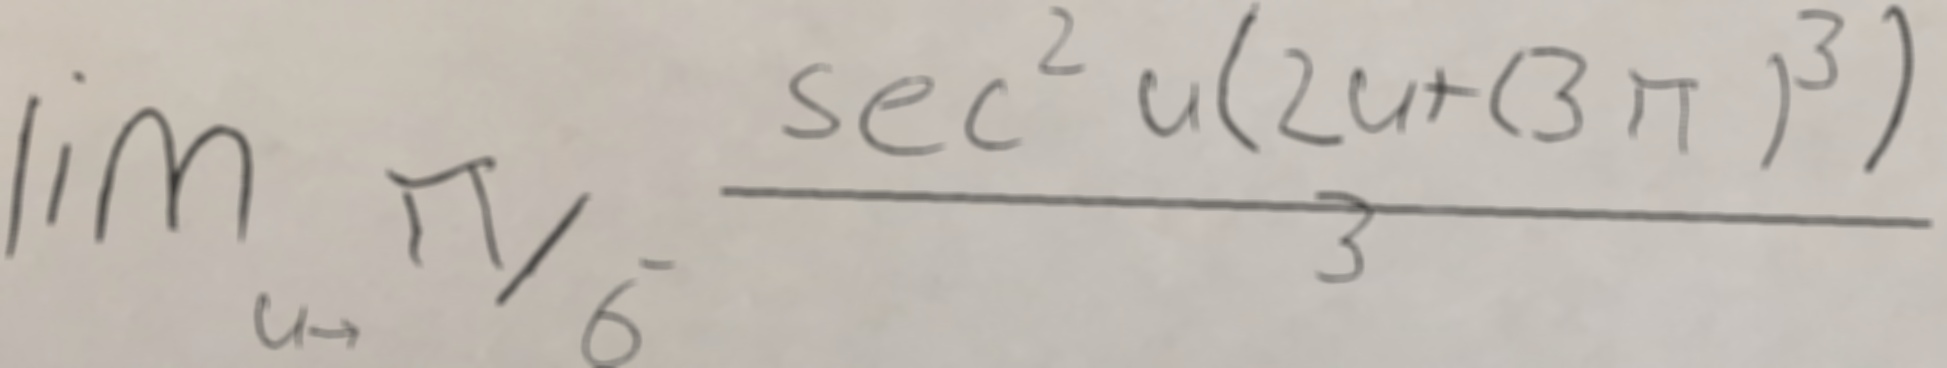 \lim_{u \to \pi/6^-} \frac{\sec^2 u(2u+(3\pi)^3)}{3}